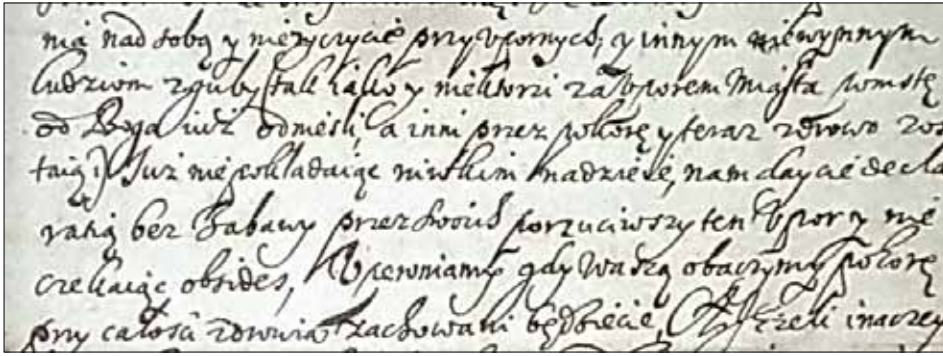 nią nad sobą y nieżyczycie przy Vpornych; y innym niewynnym
ludziom zguby (tak iako y niektorzi za Vporem Miasta pomstę
od Boga iuż odnieśli, a inni przez pokorę y teraz zdrowo zos
taią) Iuż nie pokładaiąc niwkim nadzieie, nam daycie decla
ratią bez Zabawy przez swoich porzuciwszy ten Vpor y nie
czekaiąc obsides, Vpewniamy gdy waszą obaczymy pokorę
przy całości zdrowia zachowani będziecie, A Ieżeli inaczey